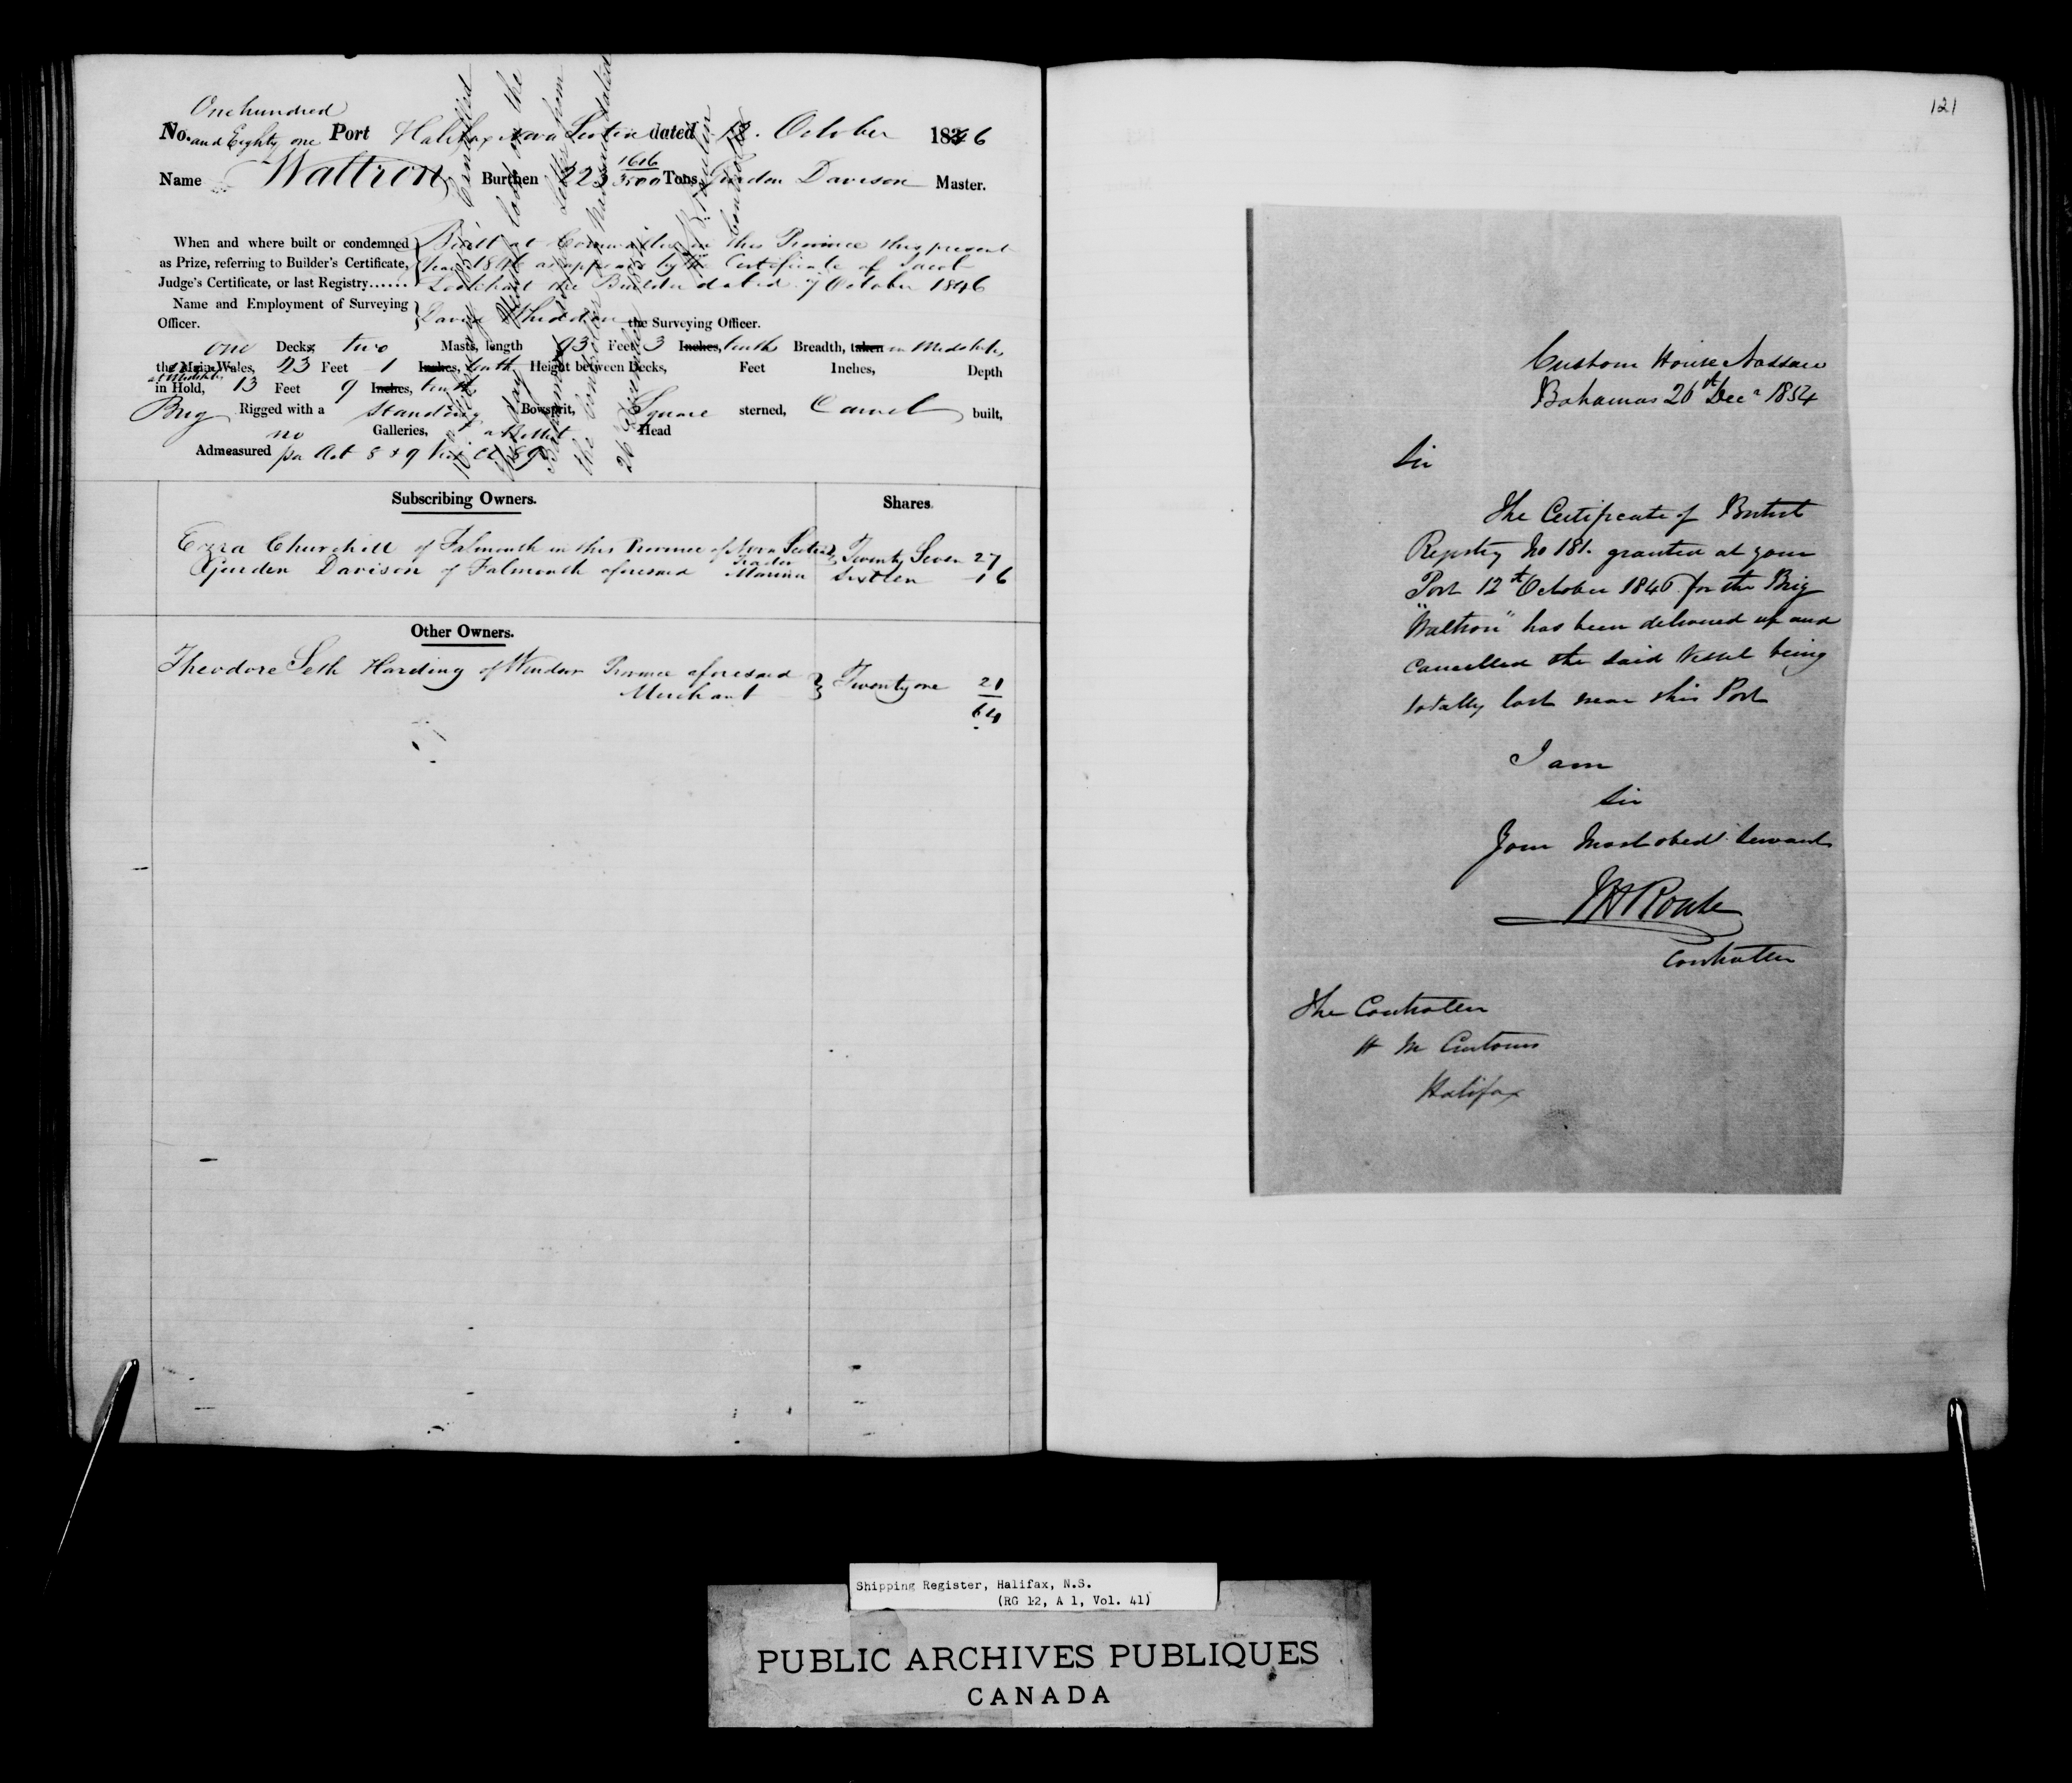 One hundred
No. and Eighty one Port Halifax Nova Scotia dated 12. October 1846
Name Waltron Burthen 223 1616/3500 Tons, Gurden Davison Master.
When and where built or condemned as Prize, referring to Builder's Certificate, Judge's Certificate, or last Registry......
Built at Cornwallis in this Province this present
Year 1846 as appears by the Certificate of Jacob
Lockhart the Builder dated 7 October 1846
Name and Employment of Surveying Officer.
David the Surveying Officer.
one Decks, two Masts, length 93 Feet 3 Inches, tenths Breadth, taken in Midships
the Main Wales, 23 Feet 1 Inches, tenth Height between Decks, Feet Inches, Depth
at Midships
in Hold, 13 Feet 9 Inches, tenths
Brig Rigged with a Standing Bowsprit, Square sterned, Carvel built,
no Galleries, a Billet Head
Admeasured per Act 8 & 9 Vic Ch 89
Cancelled
Vessel lost on the
from
the Controller Nassau dated
26 December 1854
Controller
Subscribing Owners. Shares.
Ezra Churchill of Falmouth in this Province of Nova Scotia Trader } Twenty Seven 27
Gurden Davison of Falmouth aforesaid Mariner Sixteen 16
Other Owners.
Theodore Seth Harding of Windsor Province aforesaid
Merchant } Twenty one 21
64
121
Custom House Nassau
Bahamas 26th Decr 1854
Sir
The Certificate of British
Registry No 181. granted at your
Port 12th October 1846 for the Brig
"Waltron" has been delivered up and
cancelled the said Vessel being
totally lost near this Port
I am
Sir
Your Most obed. Servant
Controller
The Controller
H M Customs
Halifax
Shipping Register, Halifax, N.S.
(RG 12, A 1, Vol. 41)
PUBLIC ARCHIVES PUBLIQUES
CANADA